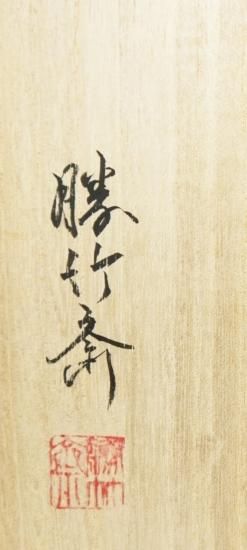 勝竹斎